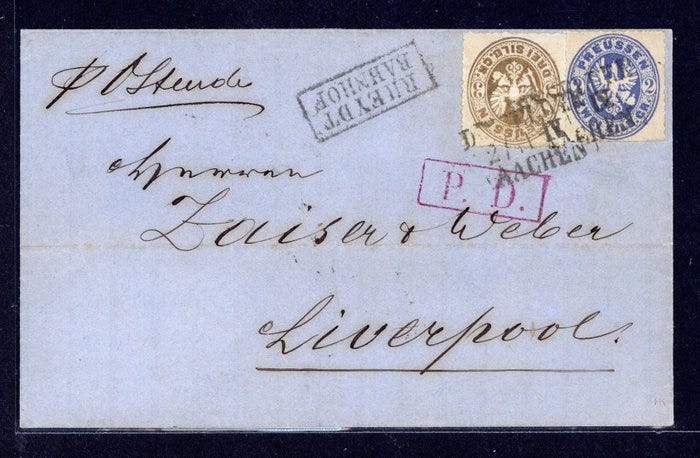 p Ostende
RHEYDT
BAHNHOF
DREI SILB.GR.
PREUSSEN
3
PREUSSEN
2
AACHEN
P. D.
Herren
Zaiser & Weber
Liverpool.